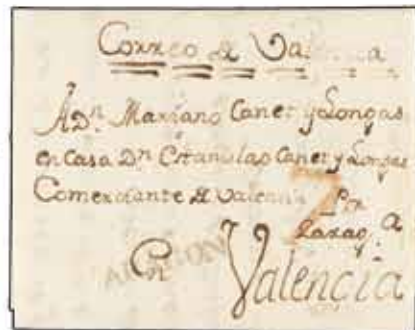 Correo de Valencia
A Dn. Mariano Canet y Longas
en Casa Dn. Estanislao Canet y Longas
Comerciante de Valencia Por
Zarag.a
ARAGON
En Valencia